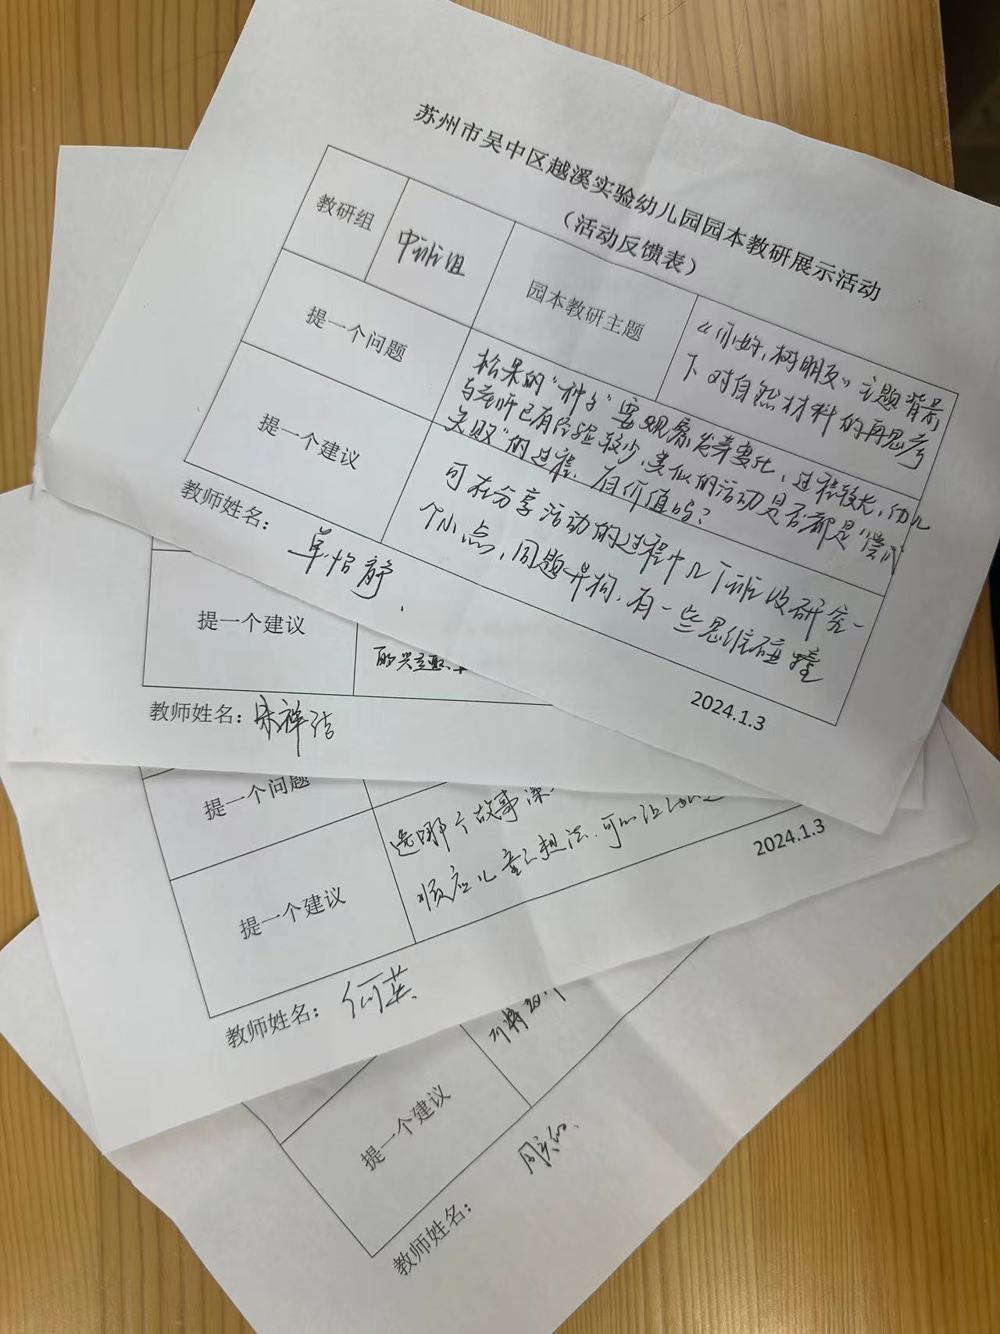 苏州市吴中区越溪实验幼儿园园本教研展示活动
（活动反馈表）
教研组
中班组
园本教研主题
《你好，树朋友》主题背景
下对自然材料的再思考
提一个问题
松果的“种子”要观察发芽变化，过程较长，幼儿
与老师已有经验较少，类似的活动是否都是“尝试
失败”的过程，有价值吗？
提一个建议
可在分享活动的过程中几个班级研究一
个小点，同题异构，有一些思维碰撞
教师姓名：
单怡静
2024.1.3
提一个建议
的兴趣
教师姓名：
提一个问题
选哪个故事深
提一个建议
顺应儿童之想法，可以让
2024.1.3
教师姓名：
何英
提一个建议
教师姓名：